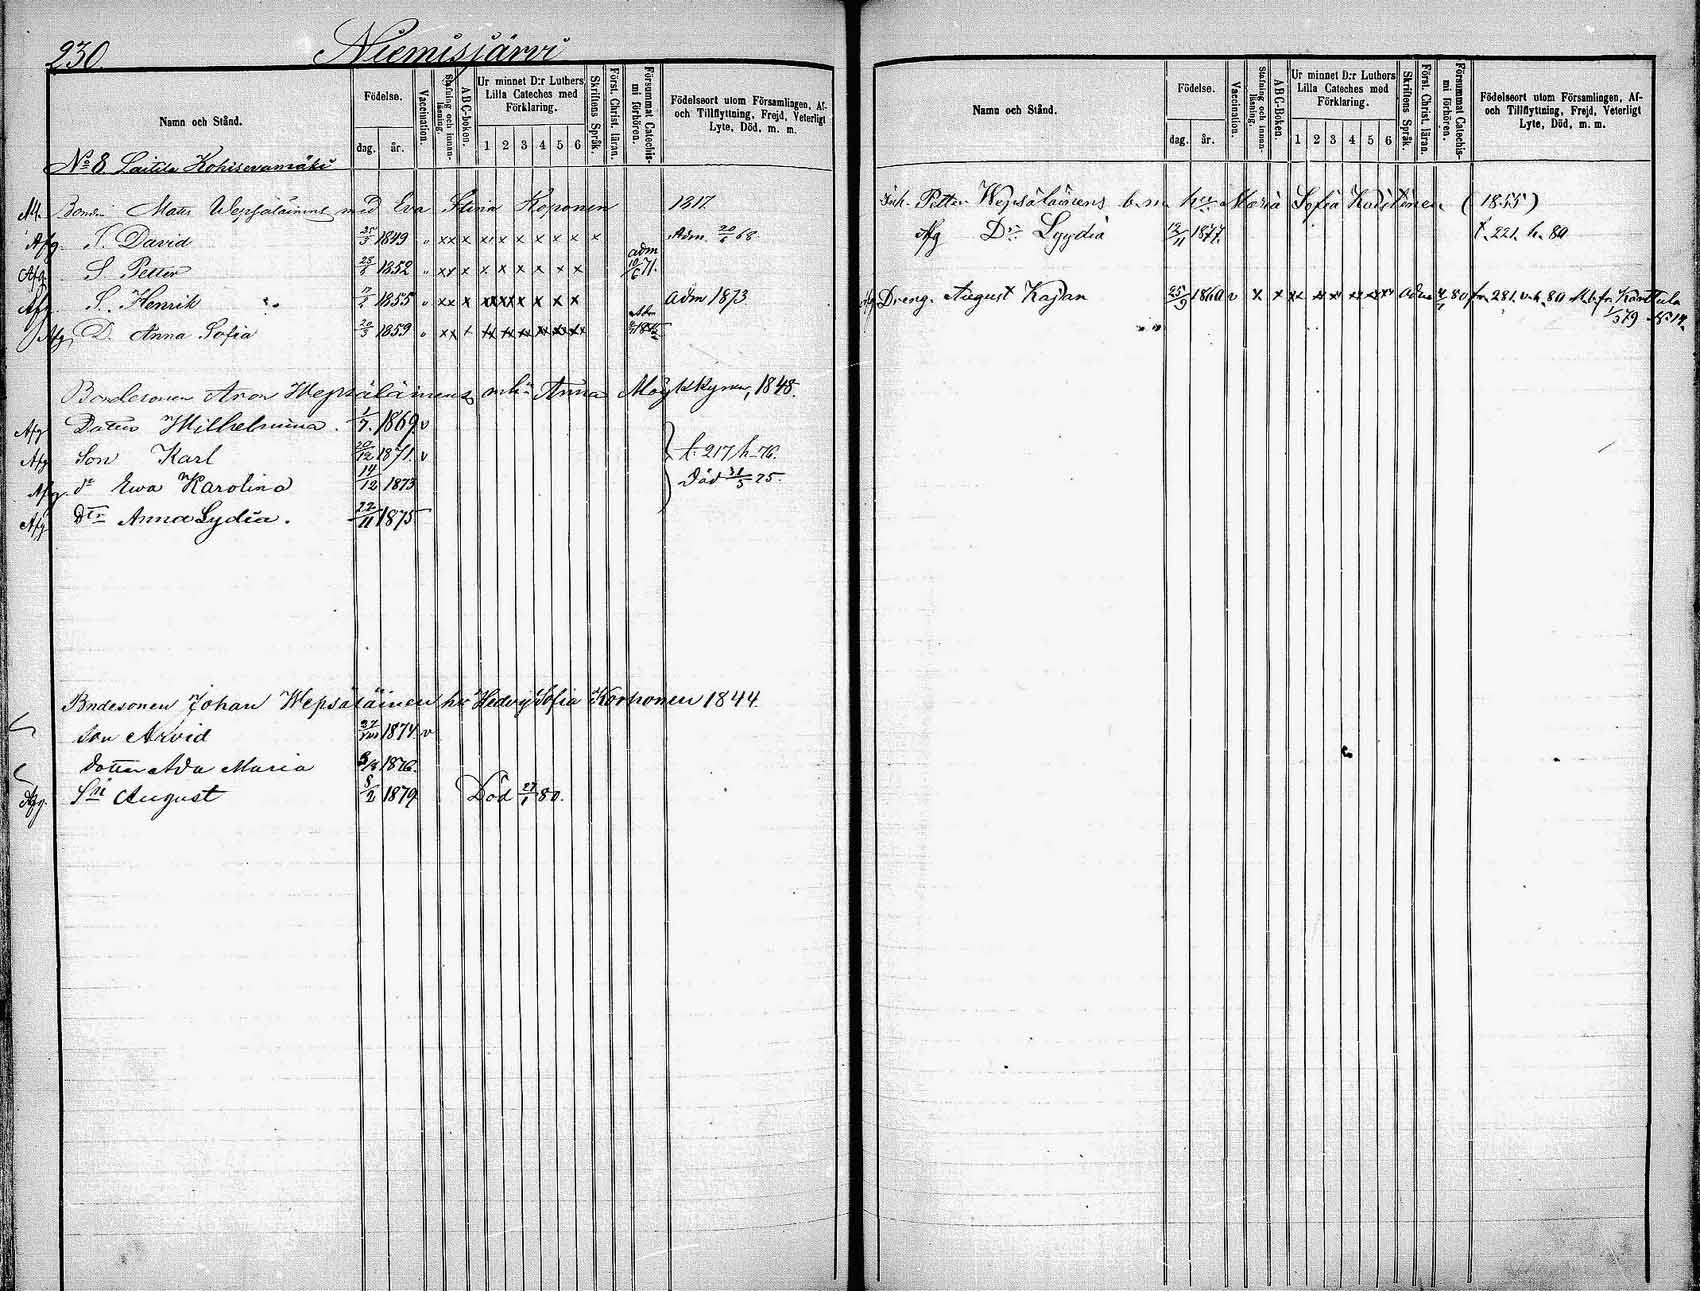 230. Niemisjärvi
Namn och Stånd.
Födelse.
dag. år.
Vaccination.
Stafning och innanläsning.
ABC-boken.
Ur minnet D:r Luthers Lilla Cateches med Förklaring.
1 2 3 4 5 6
Skriftens Språk.
Först. Christ. läran.
Försummat Catechismi förhören.
Födelseort utom Församlingen, Af- och Tillflyttning, Frejd, Veterligt Lyte, Död, m. m.
No 8 Laitila
Mats Wepsäläinens med Eva Stina Koponen 1817.
Afg. S. David 1849 " xx x x x x x x x x Adm. 20/6 68
Afg. S Petter 1852 " xx x x x x x x x adm 10/6 71.
Afg. S. Henrik 1855 " xx x x x x x x adm 1873.
Afg. D. Anna Sofia 20/3 1859 " xx x xx xx xx xx xx xx
Bondesonen Aron Wepsäläinens Anna 1848.
Afg Wilhelmina. 1/7. 1869. v
Afg Son Karl 20/12 1871. v f. 217 h-76.
Afg. dr Ewa Karolina 14/12 1873 Död 31/5 75.
Afg Dtr Anna Lydia. 22/11 1875
Bndesonen Johan Wepsäläinen hu Hedvig Sofia Korhonen 1844.
Son Arvid 1874. v
Dotter Ada Maria 1876.
Afg. Sn August 8/2 1879. Död 27/1 80.
Namn och Stånd.
Födelse.
dag. år.
Vaccination.
Stafning och innanläsning.
ABC-boken.
Ur minnet D:r Luthers Lilla Cateches med Förklaring.
1 2 3 4 5 6
Skriftens Språk.
Först. Christ. läran.
Försummat Catechismi förhören.
Födelseort utom Församlingen, Af- och Tillflyttning, Frejd, Veterligt Lyte, Död, m. m.
Petter Wepsäläinens Maria Sofia (1855)
Afg Dr Lyydia 1877. f. 221. h. 80
Afg Dreng. August Kajan 25/9 1860 v x x xx xx xx xx xx 80 281. 80 Karttula